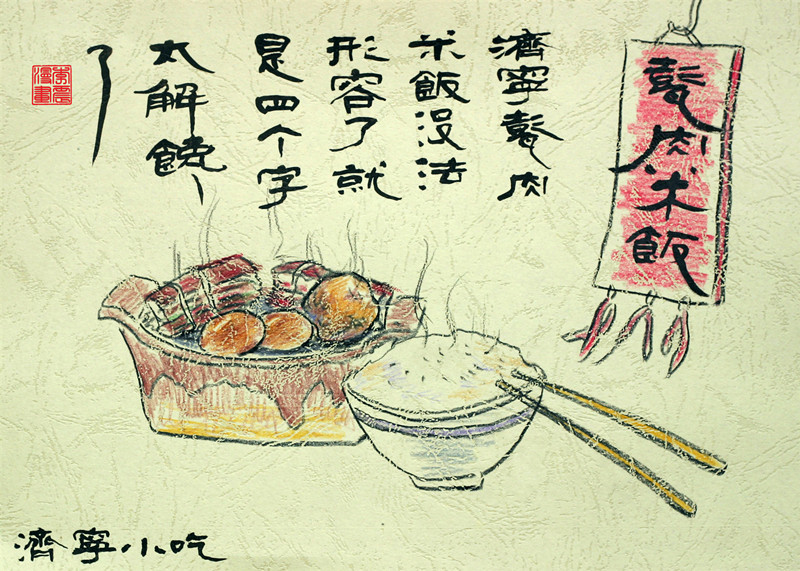 甏肉米飯
濟寧甏肉
米飯没法
形容了就
是四个字
太解饞
了
李震
漫畫
濟寧小吃